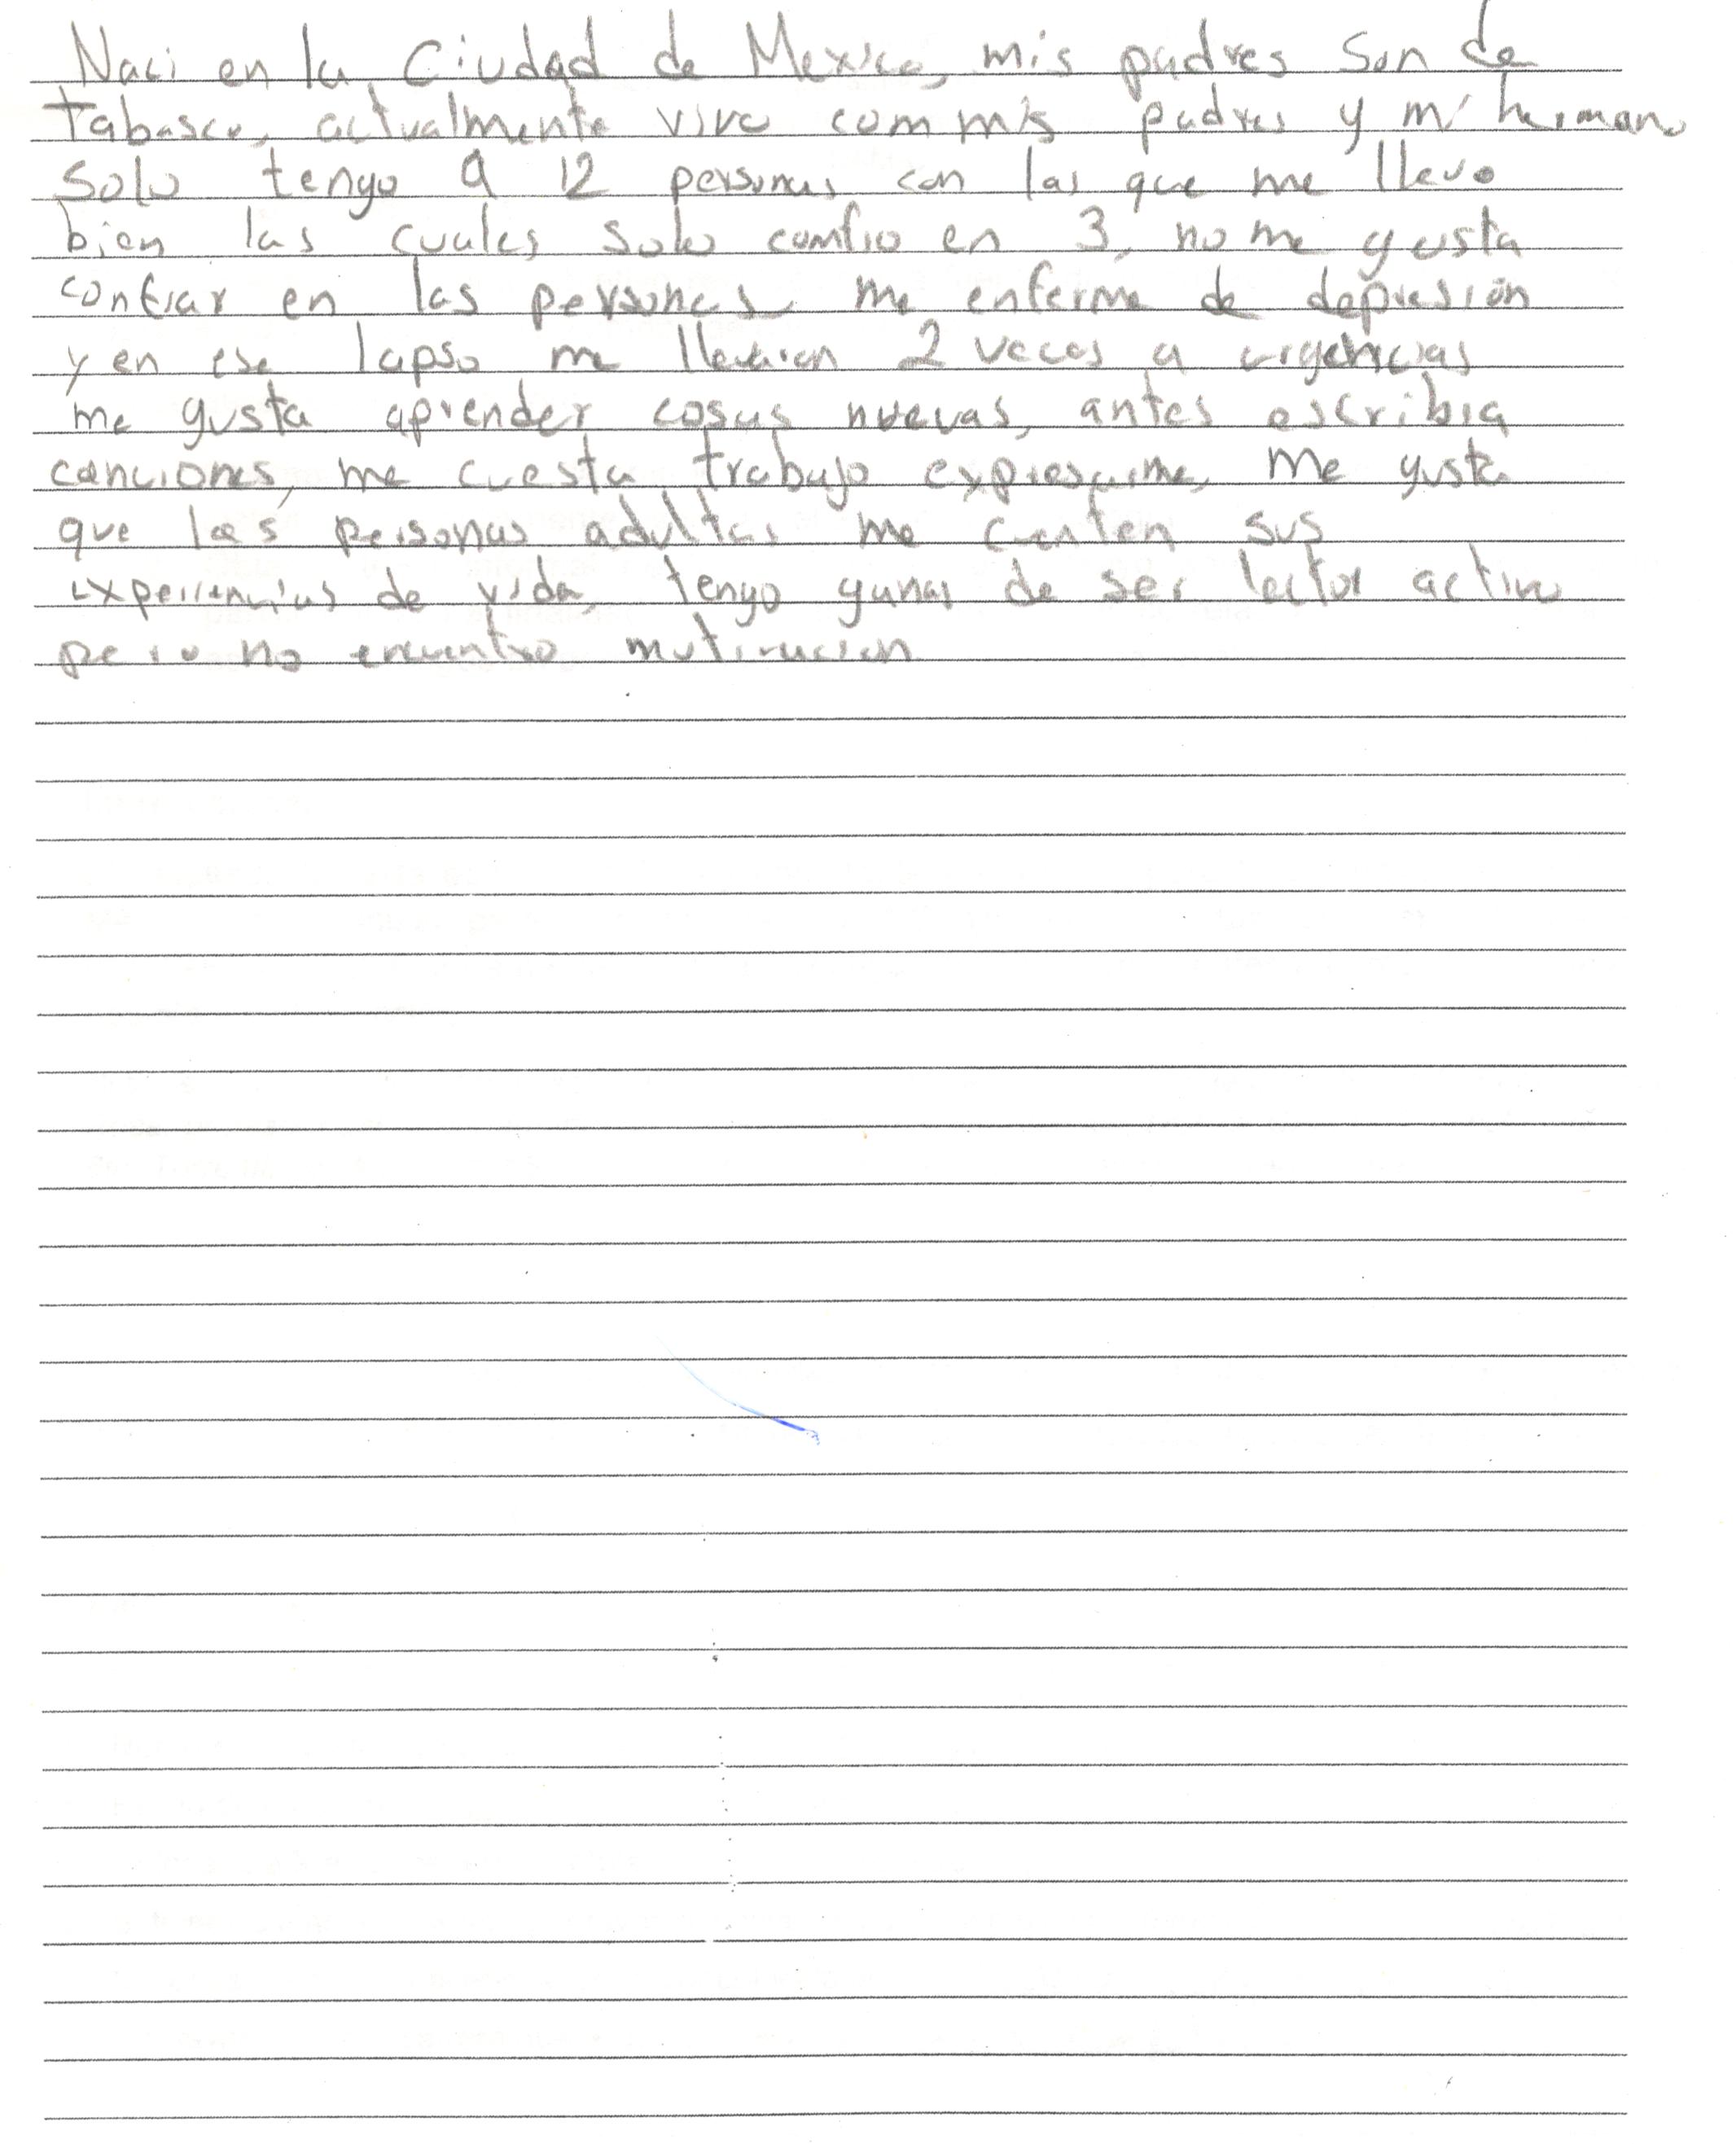 Naci en la Ciudad de Mexico, mis padres son de
tabasco, actualmente vivo com mis padres y mi hermano
solo tengo a 12 personas con las que me llevo
bien las cuales solo comfio en 3, no me gusta
confiar en las personas me enferme de depresión
y en ese lapso me llevaron 2 veces a urgencias
me gusta aprender cosas nuevas, antes escribia
canciones, me cuesta trabajo expresarme, me gusta
que las personas adultas me cuenten sus
experiencias de vida, tengo ganas de ser lector activo
pero no encuentro motivacion